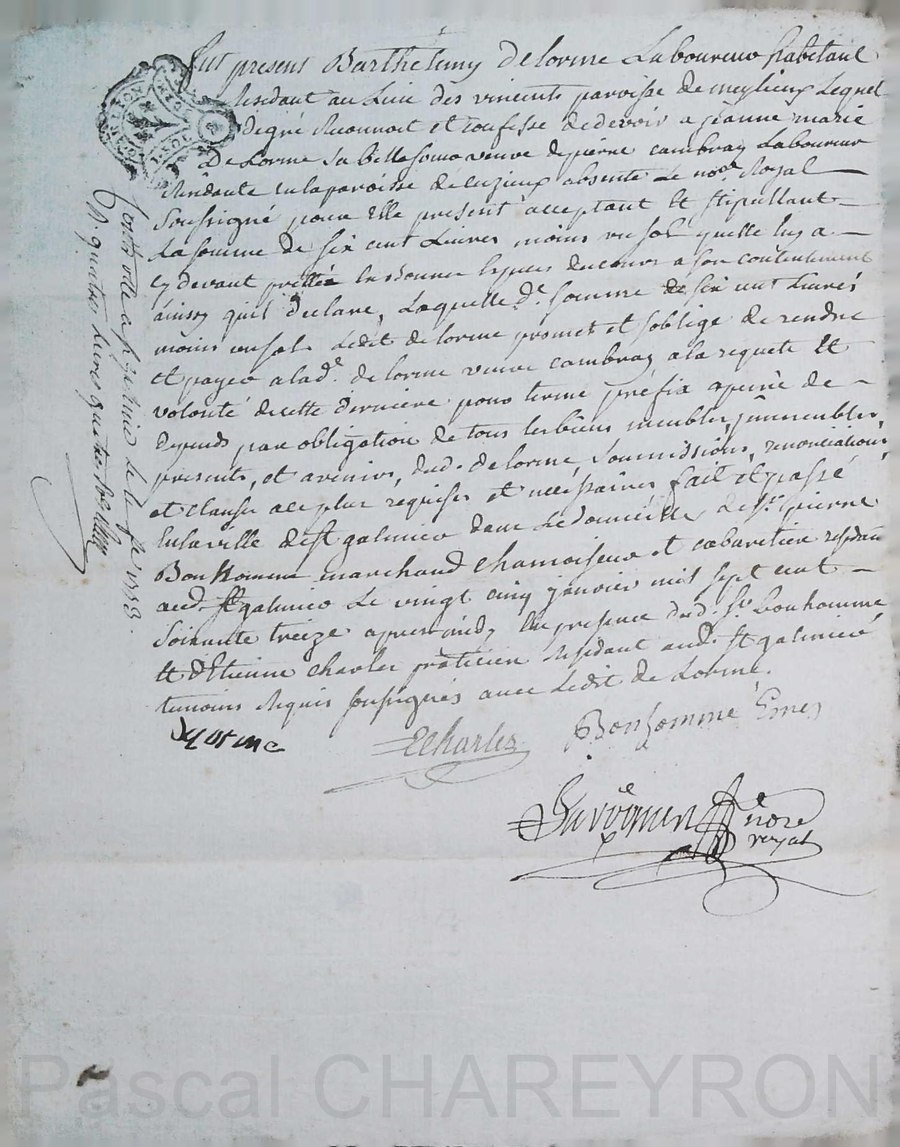 fut present Barthelemy Delorme Laboureur habitant
residant au Lieu des vincents paroisse de meylieux Lequel
degré Reconnoit et confesse de devoir a jeanne marie
De Lorme sa belle soeur veuve de pierre cambray Laboureur
Residante en la paroisse de Cuzieux absente Le nore Royal
soussigné pour Elle present acceptant Et stipullant
La somme de six cent Livres moins un sol quelle luy a
cy devant prêtée en Bonne Espece de cours a son contentement
ainsy quil declare, Laquelle de. somme de six cent Livres
moins un sol Ledit de Lorme promet et soblige de rendre
et payer a lad. de lorme veuve cambray a la requete Et
volonté de cette derniere pour terme préfix a peine de
depends par obligation de tous ses biens meubles, immeubles
presents, et avenirs, dud. de lorme, soumissions, renonciations
et clauses a ce plus requises et necessaires fait et passé
en la ville de st galmier dans Le domicille de sr. pierre
Bonhomme marchand chamoiseur et cabaretier residant
aud. st galmier Le vingt cinq janvier mil sept cent
soixante treize apres midy En presence dud. sr. bonhomme
Et d'Etienne charles praticien residant aud. st galmier
temoins Requis soussignés avec Ledit de Lorme.
Delorme
ECharles
Bonhomme
nore
royal
Controllé a st galmier le 1773.
R. quatre livres quatre sols
Pascal CHAREYRON